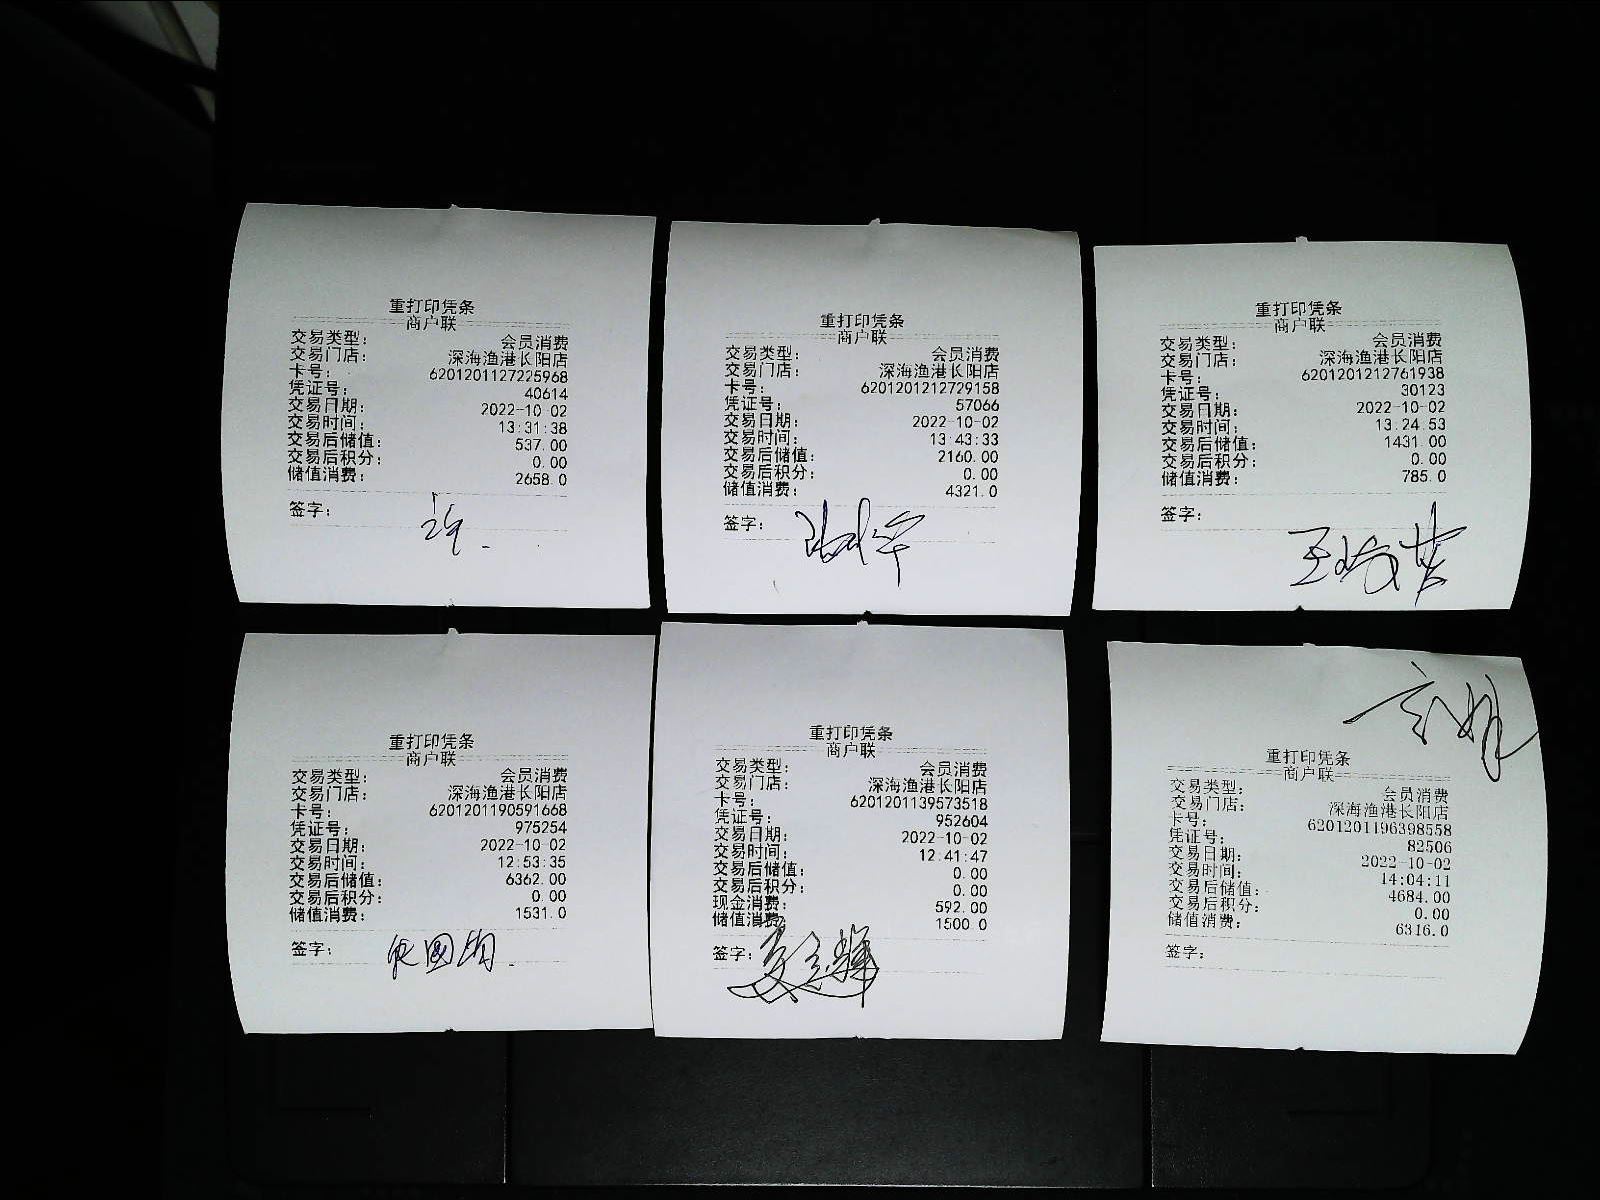 重打印凭条
商户联
交易类型: 会员消费
交易门店: 深海渔港长阳店
卡号: 6201201127225968
凭证号: 40614
交易日期: 2022-10-02
交易时间: 13:31:38
交易后储值: 537.00
交易后积分: 0.00
储值消费: 2658.0
签字:
重打印凭条
商户联
交易类型: 会员消费
交易门店: 深海渔港长阳店
卡号: 6201201212729158
凭证号: 57066
交易日期: 2022-10-02
交易时间: 13:43:33
交易后储值: 2160.00
交易后积分: 0.00
储值消费: 4321.0
签字:
重打印凭条
商户联
交易类型: 会员消费
交易门店: 深海渔港长阳店
卡号: 6201201212761938
凭证号: 30123
交易日期: 2022-10-02
交易时间: 13:24:53
交易后储值: 1431.00
交易后积分: 0.00
储值消费: 785.0
签字:
重打印凭条
商户联
交易类型: 会员消费
交易门店: 深海渔港长阳店
卡号: 6201201190591668
凭证号: 975254
交易日期: 2022-10-02
交易时间: 12:53:35
交易后储值: 6362.00
交易后积分: 0.00
储值消费: 1531.0
签字:
重打印凭条
商户联
交易类型: 会员消费
交易门店: 深海渔港长阳店
卡号: 6201201139573518
凭证号: 952604
交易日期: 2022-10-02
交易时间: 12:41:47
交易后储值: 0.00
交易后积分: 0.00
现金消费: 592.00
储值消费: 1500.0
签字:
重打印凭条
商户联
交易类型: 会员消费
交易门店: 深海渔港长阳店
卡号: 6201201196398558
凭证号: 82506
交易日期: 2022-10-02
交易时间: 14:04:11
交易后储值: 4684.00
交易后积分: 0.00
储值消费: 6316.0
签字: